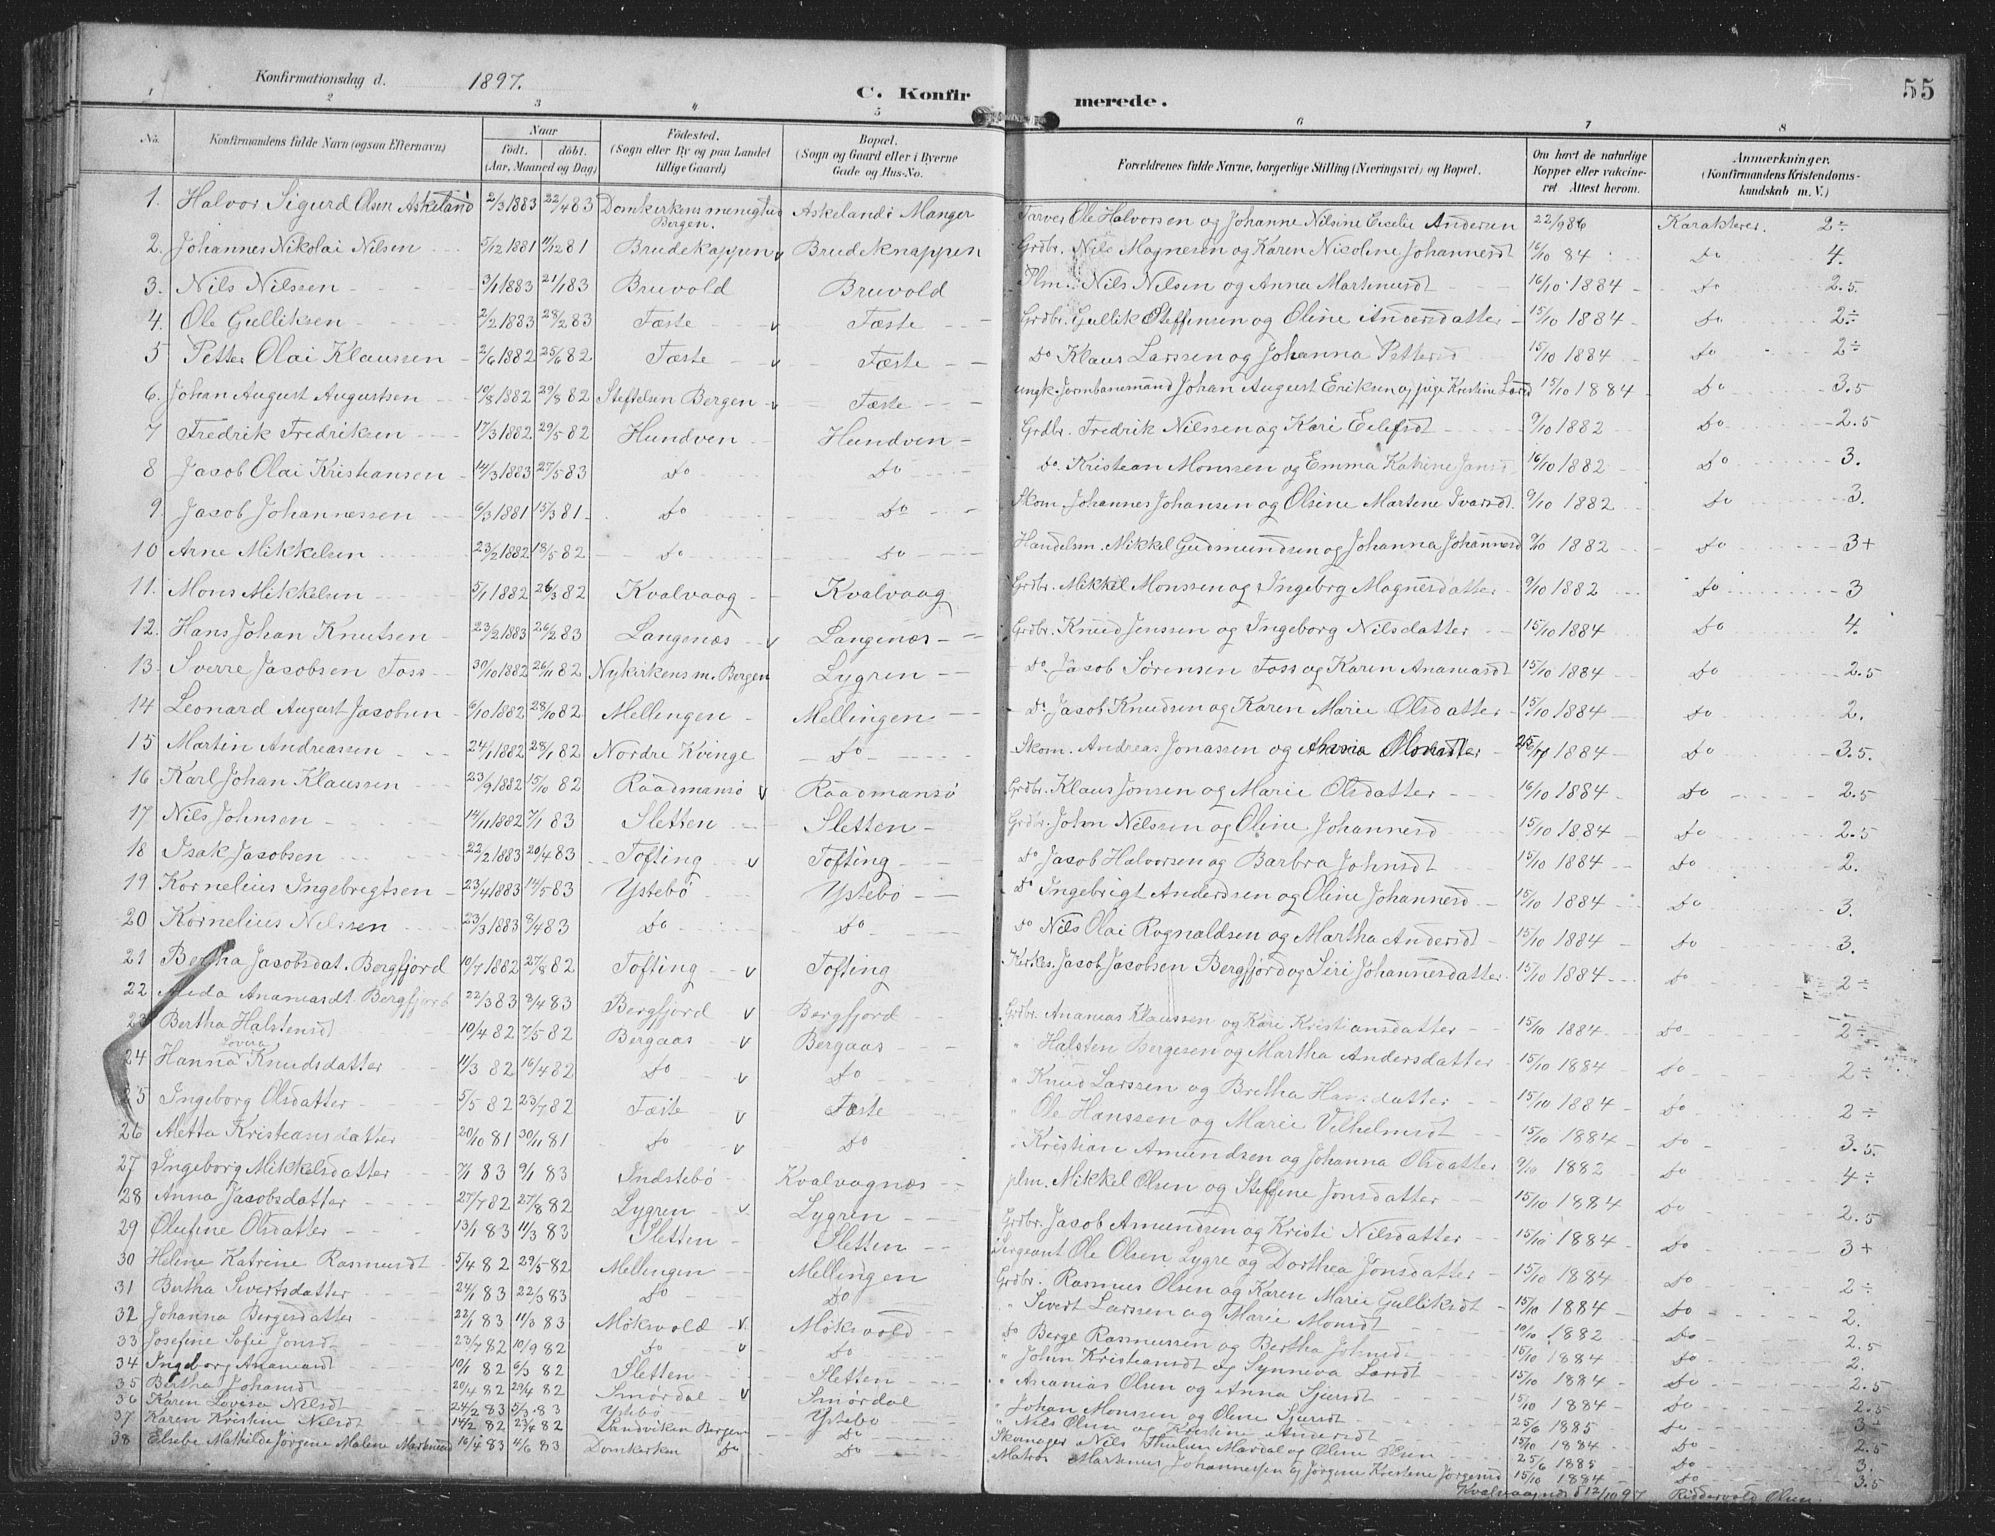 Konfirmationsdag d. 1897. C. Konfirmerede. 55
1 2 3 " 5 6 7 8
No. Konfirmandens fulde Navn (ogsaa Efternavn) Naar født. døbt. (Aar, Maaned og Dag) Fødested. (Sogn eller By og paa Landet tillige Gaard) Bopæl. (Sogn og Gaard eller i Byerne Gade og Hus-No. Forældrenes fulde Navne, borgerlige Stilling (Næringsvei) og Bopæl. Om havt de naturlige Kopper eller vaccineret Attest herom. Anmærkninger. (Konfirmandens Kristendomskundskab m. V.)
1. Halvor Sigurd Olsen Askeland 2/3 1883 22/4 83 Domkirkens menighed Bergen. Askeland i Manger Farver Ole Halvorsen og Johanne Nilsine Andersen 22/9 86 Karakterer. 2÷
2. Johannes Nikolai Nilsen 5/12 1881 11/12 81 Brudekappen v Brudeknappen Grdbr. Nils Magnesen og Karen Nicoline Johannesdt 16/10 84 Do 4.
3. Nils Nilssen 3/1 1883 21/1 83 Bruvold Bruvold Plm. Nils Nilsen og Anna Martinusdt 16/10 1884 Do 2.5.
4. Ole Gulliksen 2/2 1883 28/2 83 Fæste v Fæste Grdbr. Gullik Steffensen og Oline Andersdatter 15/10 1884 Do 2÷
5 Petter Olai Klaussen 2/6 1882 25/6 82 Fæste v Fæste Do Klaus Larssen og Johanna Pettersd 15/10 1884 Do 2÷
6. Johan August Augustsen 19/8 1882 29/8 82 Stiftelsen Bergen v Fæste ungk. Jernbanemand Johan August Eriksen og pige Kristine Larsd 15/10 1884 Do 3.5
7 Fredrik Fredriksen 17/3 1882 29/5 82 Hundven Hundven Grdbr. Fredrik Nilssen og Kari Eilefsdt 9/10 1882 Do 2.5
8 Jacob Olai Kristiansen 14/3 1883 27/5 83 Do Do Do Kristian Monssen og Emma Katrine Jansd 16/10 1882 Do 3.
9 Jacob Johannessen 6/3 1881 15/3 81 Do Do Skom. Johannes Johansen og Olsine Martine Ivarsdt. 9/10 1882 Do 3.
10 Arne Mikkelsen 23/2 1882 18/5 82 Do Do Handelsm. Mikkel Gudmundsen og Johanna Johannesd 9/10 1882 Do 3+
11. Mons Mikkelsen 5/1 1882 26/3 82 Kvalvaag Kvalvaag Grdbr. Mikkel Monssen og Ingeborg Magnesdatter 9/10 1882 Do 3
12. Hans Johan Knutsen 23/2 1883 26/2 83 Langenæs v Langenæs Grdbr. Knud Jenssen og Ingeborg Nilsdatter 15/10 1884 Do 4.
13. Sverre Jacobsen Foss 30/10 1882 26/11 82 Nykirkens m. Bergen Lygren Do Jacob Sørensen Foss og Karen Ananiasdt 15/10 1884 Do 2.5
14 Leonard August Jacobsen 6/10 1882 28/10 82 Mellingen Mellingen Do Jacob Knudsen og Karen Marie Olsdatter 15/10 1884 Do 2.
15 Martin Andreassen 24/1 1882 28/1 82 Nordre Kvinge Do Skom. Andreas Jonassen og 1884 Do 3.5
16 Karl Johan Klaussen 23/9 1882 15/10 82 Raadmansø v Raadmansø Grdbr. Klaus Jonsen og Marie Olsdatter 16/10 1884 Do 2.5
17 Nils Johnsen 14/11 1882 7/1 83 Sletten Sletten Grdbr. John Nilssen og Oline Johannesd 15/10 1884 Do 2.5
18 Isak Jacobsen 22/2 1883 20/4 83 Tofting v Tofting Do Jacob Halvorsen og Barbra Johnsdt 15/10 1884 Do 2.
19 Kornelius Ingebrigtsen 23/4 1883 14/5 83 Ystebø Ystebø Do Ingebrigt Anderdsen og Oline Johannesd 15/10 1884 Do 3.
20 Kornelius Nilssen 23/3 1883 8/4 83 Do Do Do Nils Olai Rognaldsen og Martha Andersdt 15/10 1884 Do 3.
21 Bertha Jacobsdat. Bergfjord 10/7 1882 27/8 82 Tofting v Tofting Kirkes. Jacob Jacobsen Bergfjord og Siri Johannesdatter 15/10 1884 Do 2÷
22 Ananiasdt. Bergfjord 22/3 83 3/4 83 Bergfjord v Bergfjord Grdbr. Ananias Klaussen og Kari Kristiansdatter 15/10 1884 Do 2÷
23 Bertha Halstensdt 10/4 82 7/5 82 Bergaas v Bergaas " Halsten Bergesen og Martha Andersdatter 15/10 1884 Do 2÷
24 Hanna Lovera Knudsdatter 11/3 82 16/4 82 Do v Do " Knud Larssen og Bretha Hansdatter 15/10 1884 Do 2÷
25 Ingeborg Olsdatter 5/5 82 23/7 82 Fæste v Fæste " Ole Hanssen og Marie Vilhelmsdt 15/10 1884 Do 3.5.
26 Aletta Kristiansdatter 20/10 81 30/11 81 Do v Do " Kristian Amundsen og Johanna Olsdatter 9/10 1882 Do 4÷
27 Ingeborg Mikkelsdatter 7/1 83 9/1 83 Indstebø Kvalvagnæs plm. Mikkel Olsen og Steffine Jonsdatter 15/10 1884 Do 2.5
28 Anna Jacobsdatter 27/7 82 27/8 82 Lygren v Lygren Grdbr. Jacob Amundsen og Kristi Nilsdatter 15/10 1884 Do 3+
29 Olufine Olsdatter 13/1 83 11/3 83 Sletten Sletten Sergeant Ole Olsen Lygre og Dorthea Jonsdatter 15/10 1884 Do 2÷
30 Heline Katrine Rasmusdt 5/4 82 29/5 82 Mellingen Mellingen Grdbr. Rasmus Olsen og Karen Marie Gulliksdt 15/10 1884 Do 2.
31 Bertha Sivertsdatter 24/1 83 22/3 83 Do Do " Sivert Larssen og Marie Monsdt 10/10 1882 Do 2.5
32 Johanna Bergesdatter 22/1 83 11/3 83 Møksvold v Møksvold Do Berge Rasmussen og Bertha Johnsdt 15/10 1884 Do 2.
33 Josefine Sofie Jonsd 23/7 82 10/9 82 Do v Do " John Kristiansdt og Synneva Larsdt 15/10 1884 Do 2.5
34 Ingeborg Ananiasdt 10/1 82 6/3 82 Sletten Sletten " Ananias Olsen og Anna Sjursdt 15/10 1884 Do 2.5
35 Bertha Johansdt 20/4 82 29/4 82 Smørdal v Smørdal " Johan Monssen og Oline Sjursdt 25/6 1885 Do 3÷
36 Karen Lovisa Nilsdt 24/2 83 5/3 83 Ystebø Ystebø " Nils Olsen og Kristine Andersdt 15/10 1884 Do 2.5
37 Karen Kristine Nilsdt 14/2 82 23/4 82 Sandviken Bergen Do Skomager Nils Mardal og Oline Olsen 25/6 1885 Do 3.
38 Elsebe Mathilde Jørgine Malene Martinusd 16/4 83 4/6 83 Domkirken Do Do Matros Martinus Johannessen og Jørgine Kristine Jørgensd 15/10 1884 Do 3.5
Kvalvaagnæs d 12/10 97 Riddervold Olsen.